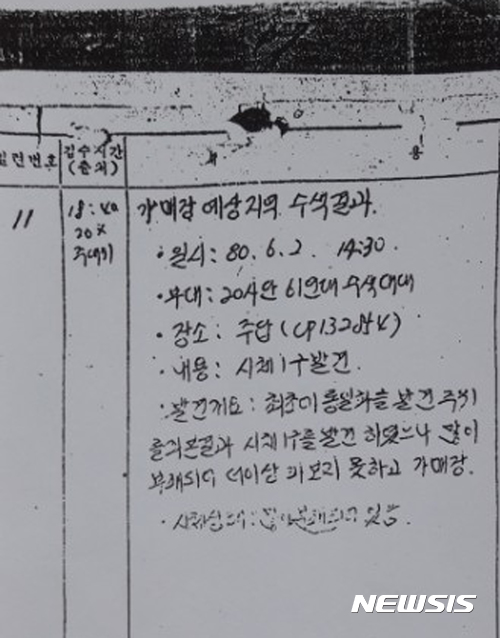 일련번호 접수시간 (출처) 용
11 18:40 가매장 예상지역 수색결과.
·일시: 80. 6. 2. 14:30.
·부대: 20사단 61연대 수색대대
·장소: 주답 (CP1328
·내용: 시체 1구 발견.
·발견개요: 최초에 통일화를 발견 주위
를 파본결과 시체 1구를 발견 하였으나 많이
부패되어 더이상 파보지 못하고 가매장.
·시체상태: 많이 부패되어 있음.
NEWSIS